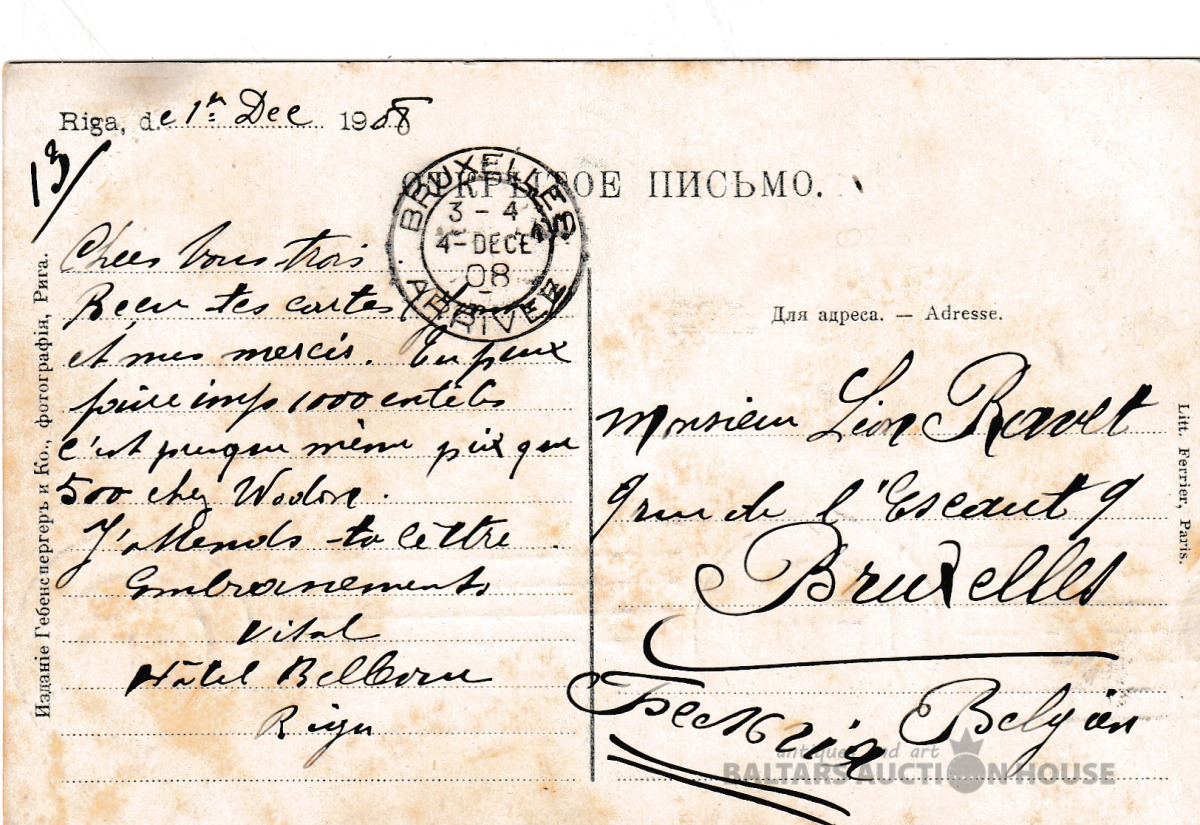 Riga, de 1er Dec 1908
13/
ОТКРЫТОЕ ПИСЬМО.
BRUXELLES
3 - 4
4 - DECE
08
ARRIVEE
Chers Vous trois
Recu tes cartes
et mes mercis. Tu peux
faire imp 1000 entêtes
c'est presque même prix que
500 chez Wodon.
J'attends ta lettre.
Embrassements
Vital
Hôtel Bellevue
Riga
Для адреса. — Adresse.
Monsieur Léon Ravet
9 rue de l'Escaut 9
Bruxelles
Бельгія Belgien
Изданіе Гебенспергеръ и Ко., фотографія, Рига.
Litt. Ferrier, Paris.
antiques and art
BALTARS AUCTION HOUSE